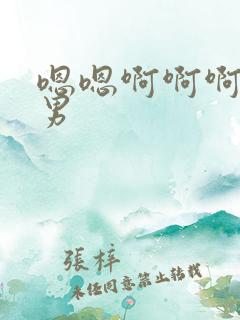 嗯嗯啊啊啊
男
張梓
未經同意禁止轉載